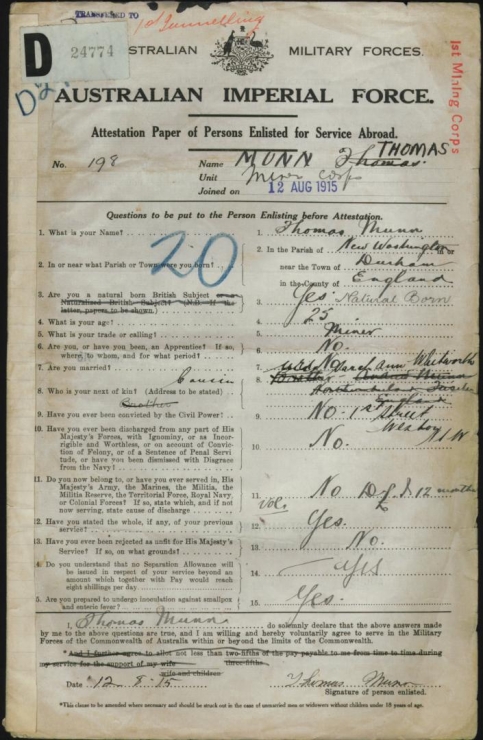 TRANSFERRED TO
1st Tunnelling
D
24774
AUSTRALIAN MILITARY FORCES.
1st Mining Corps
AUSTRALIAN IMPERIAL FORCE.
Attestation Paper of Persons Enlisted for Service Abroad.
No. 198 Name MUNN Thomas. THOMAS
Unit Miner Corps
Joined on 12 AUG 1915
Questions to be put to the Person Enlisting before Attestation.
20
1. What is your Name? 1. Thomas Munn
2. In or near what Parish or Town were you born? 2. In the Parish of New Washington in or
near the Town of Durham
in the County of England
3. Are you a natural born British Subject or a Naturalized British Subject? (N.B. If the latter, papers to be shown.) 3. Yes Natural Born
4. What is your age? 4. 25
5. What is your trade or calling? 5. Miner
6. Are you, or have you been, an Apprentice? If so, where, to whom, and for what period? 6. No.
7. Are you married? 7. No
8. Who is your next of kin? (Address to be stated) 8. Ann Whitworth
Cousin
Brother
England
Street
N.S.W
9. Have you ever been convicted by the Civil Power? 9. No.
10. Have you ever been discharged from any part of His
Majesty's Forces, with Ignominy, or as Incor-
rigible and Worthless, or on account of Convic-
tion of Felony, or of a Sentence of Penal Servi-
tude, or have you been dismissed with Disgrace
from the Navy? 10. No.
11. Do you now belong to, or have you ever served in, His
Majesty's Army, the Marines, the Militia, the
Militia Reserve, the Territorial Force, Royal Navy,
or Colonial Forces? If so, state which, and if not
now serving, state cause of discharge 11. No D.L.I. 12 months
Vol.
12. Have you stated the whole, if any, of your previous
service? 12. Yes.
13. Have you ever been rejected as unfit for His Majesty's
Service? If so, on what grounds? 13. No.
14. Do you understand that no Separation Allowance will
be issued in respect of your service beyond an
amount which together with Pay would reach
eight shillings per day 14. Yes
15. Are you prepared to undergo inoculation against smallpox
and enteric fever? 15. Yes.
I, Thomas Munn do solemnly declare that the above answers made
by me to the above questions are true, and I am willing and hereby voluntarily agree to serve in the Military
Forces of the Commonwealth of Australia within or beyond the limits of the Commonwealth.
*And I further agree to allot not less than two-fifths of the pay payable to me from time to time during
three-fifths
my service for the support of my wife
wife and children
Date 12 8 15 Thomas Munn
Signature of person enlisted.
*This clause to be amended where necessary and should be struck out in the case of unmarried men or widowers without children under 18 years of age.